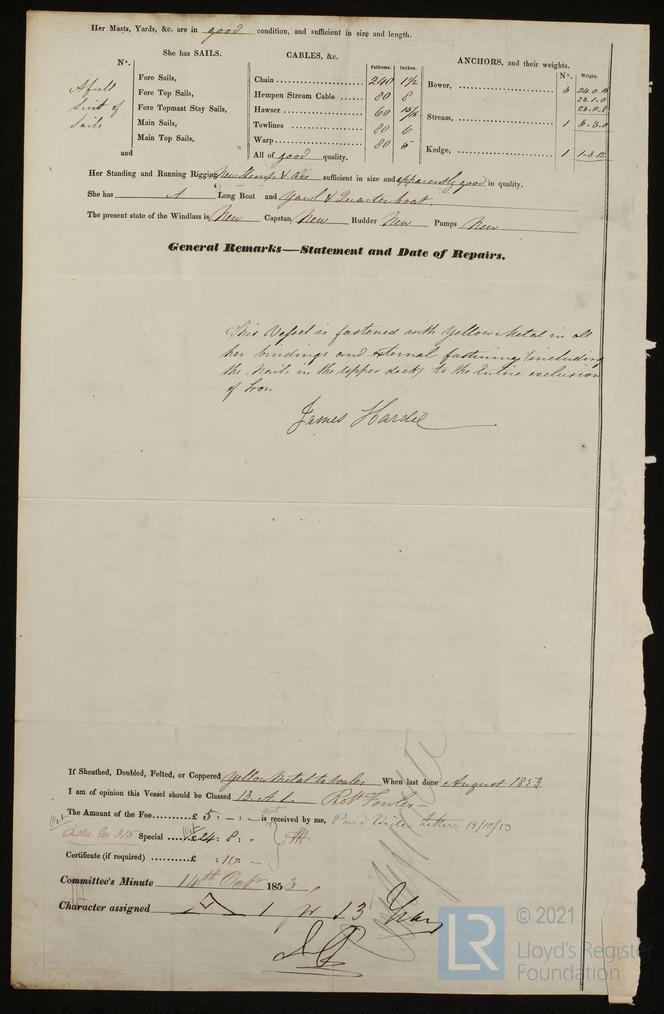 Her Masts, Yards, &c. are in good condition, and sufficient in size and length.
She has SAILS.
CABLES, &c.
ANCHORS, and their weights.
Nº.
Fathoms. Inches.
Nº. Weight.
A full
Suit of
Sails
Fore Sails,
Fore Top Sails,
Fore Topmast Stay Sails,
Main Sails,
Main Top Sails,
and
Chain 240 1½
Hempen Stream Cable 80 8
Hawser 60 15/16
Towlines 80 6
Warp 80 5
All of good quality.
Bower, 3
Stream, 1 5.3.0
Kedge, 1 1.3.12
Her Standing and Running Rigging New Hemp & are sufficient in size and apparently good in quality.
She has A Long Boat and Yawl & Quarter boat.
The present state of the Windlass is New Capstan New Rudder New Pumps New
General Remarks—Statement and Date of Repairs.
This Vessel is fastened with Yellow Metal in all
her bindings and external fastenings (including
the Nails in the upper deck) to the Entire exclusion
of Iron
James Hardie
If Sheathed, Doubled, Felted, or Coppered Yellow Metal to Wales When last done August 1853
I am of opinion this Vessel should be Classed 13. A. 1.
The Amount of the Fee £ 5 : - : - is received by me, 13/10/53
Special £ 24 : 8 : -
Certificate (if required) £ : 10 : -
Committee's Minute 14th Oct 1853,
Character assigned A 1 for 13 Years
© 2021
LR
Lloyd's Register
Foundation